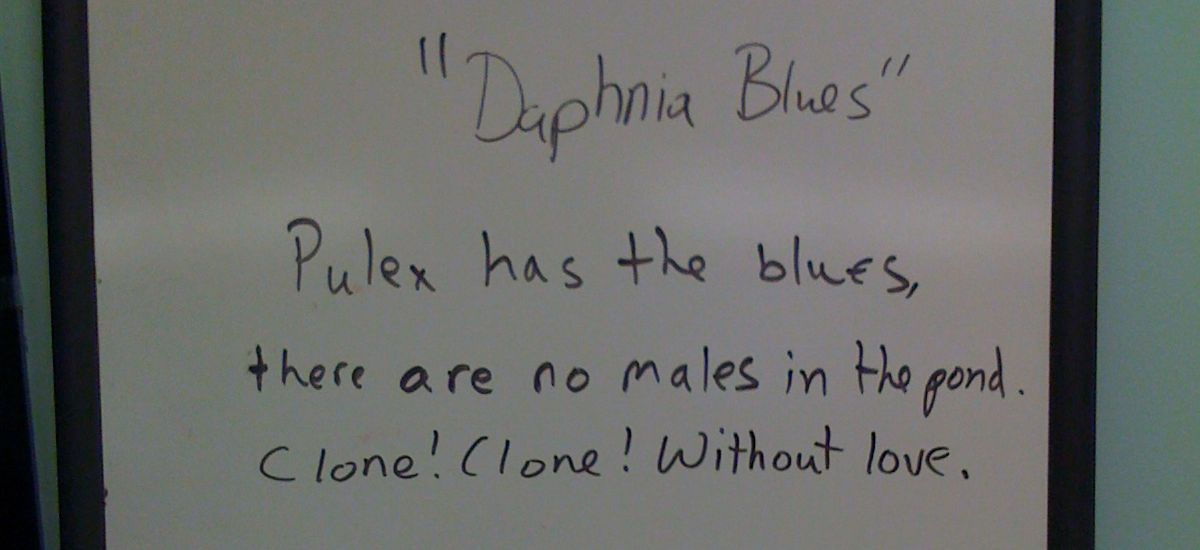 "Daphnia Blues"
Pulex has the blues,
there are no males in the pond.
Clone! Clone! Without love.